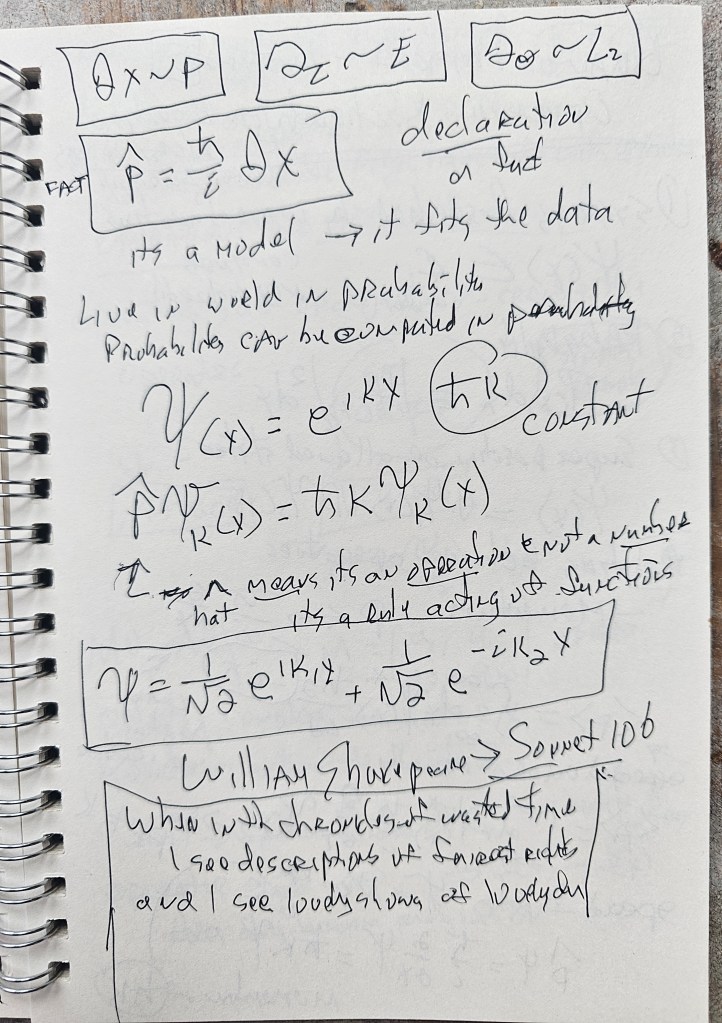 ∂x ~ P   ∂t ~ E   ∂θ ~ Lz
declaration
FACT p̂ = ħ/i ∂x of fact
its a model → it fits the data
Live in world in probability
Probabilities can be computed in
ψ(x) = e^ikx ħk constant
p̂ψ_k(x) = ħkψ_k(x)
^ means its an operation & not a number
hat its a rule acting of functions
ψ = 1/√2 e^ik₁x + 1/√2 e^-ik₂x
William Shakepeare → Sonnet 106
When in th chronicles of wasted time
I see descriptions of fairest
and I see of